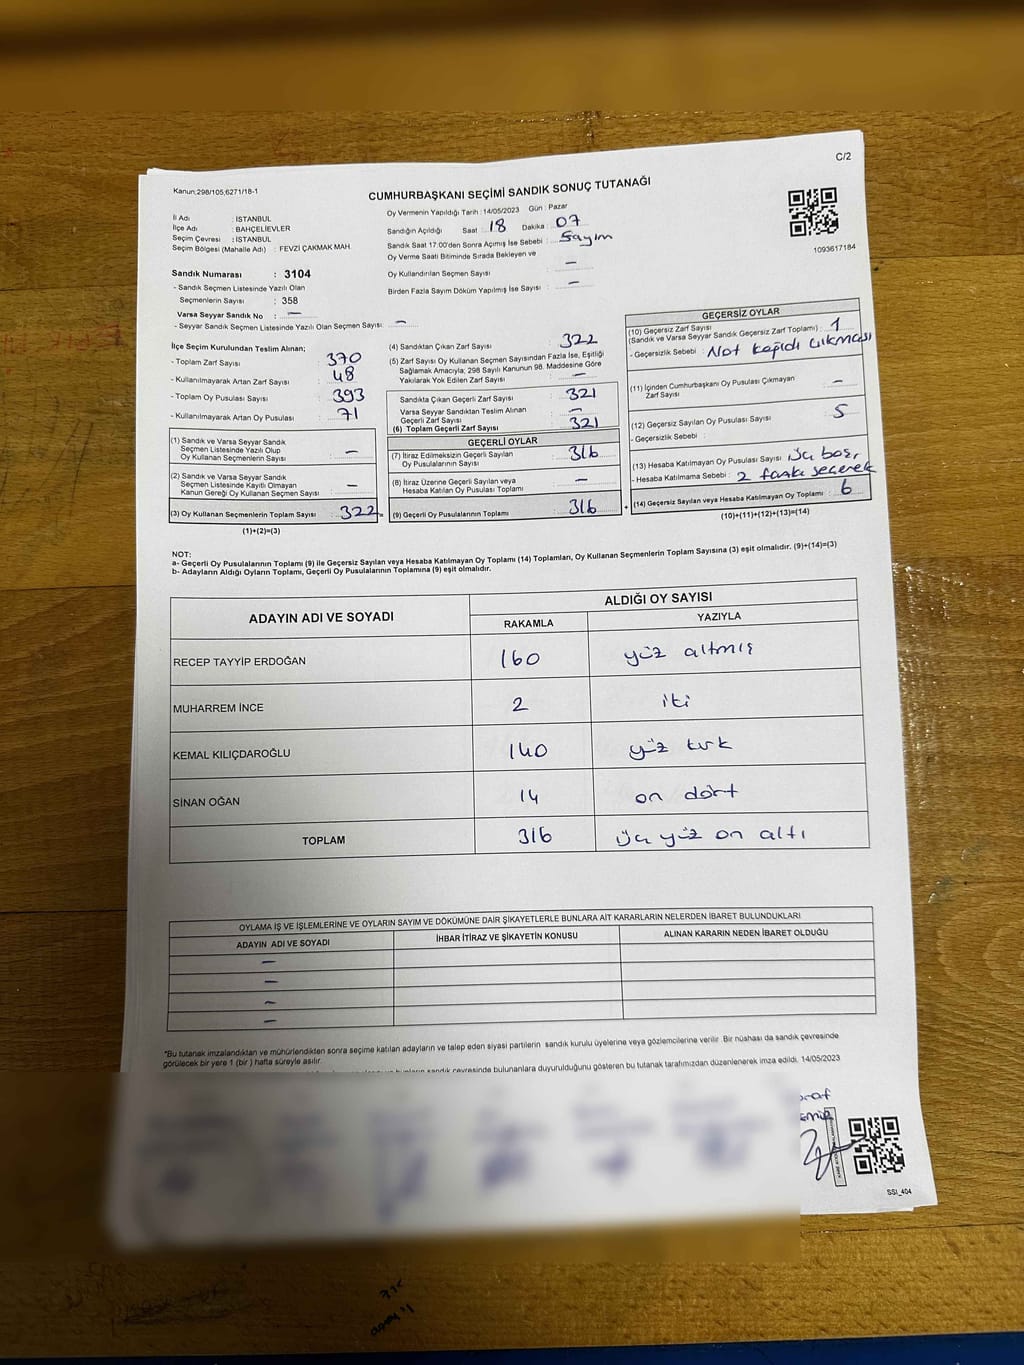 C/2
Kanun;298/105,6271/18-1
CUMHURBAŞKANI SEÇİMİ SANDIK SONUÇ TUTANAĞI
İl Adı : İSTANBUL
İlçe Adı : BAHÇELİEVLER
Seçim Çevresi : İSTANBUL
Seçim Bölgesi (Mahalle Adı) : FEVZİ ÇAKMAK MAH.
Sandık Numarası : 3104
- Sandık Seçmen Listesinde Yazılı Olan
Seçmenlerin Sayısı : 358
Varsa Seyyar Sandık No : —
- Seyyar Sandık Seçmen Listesinde Yazılı Olan Seçmen Sayısı : —
Oy Vermenin Yapıldığı Tarih :14/05/2023 Gün : Pazar
Sandığın Açıldığı Saat : 18 Dakika : 07
Sandık Saat 17.00'den Sonra Açımış İse Sebebi : Sayım
Oy Verme Saati Bitiminde Sırada Bekleyen ve
Oy Kullandırılan Seçmen Sayısı : —
Birden Fazla Sayım Döküm Yapılmış İse Sayısı : —
1093617184
İlçe Seçim Kurulundan Teslim Alınan;
- Toplam Zarf Sayısı : 370
- Kullanılmayarak Artan Zarf Sayısı : 48
- Toplam Oy Pusulası Sayısı : 393
- Kullanılmayarak Artan Oy Pusulası : 71
(1) Sandık ve Varsa Seyyar Sandık
Seçmen Listesinde Yazılı Olup
Oy Kullanan Seçmenlerin Sayısı : —
(2) Sandık ve Varsa Seyyar Sandık
Seçmen Listesinde Kayıtlı Olmayan
Kanun Gereği Oy Kullanan Seçmen Sayısı : —
(3) Oy Kullanan Seçmenlerin Toplam Sayısı : 322 =
(1)+(2)=(3)
(4) Sandıktan Çıkan Zarf Sayısı : 322
(5) Zarf Sayısı Oy Kullanan Seçmen Sayısından Fazla İse, Eşitliği
Sağlamak Amacıyla; 298 Sayılı Kanunun 98. Maddesine Göre
Yakılarak Yok Edilen Zarf Sayısı : —
Sandıkta Çıkan Geçerli Zarf Sayısı : 321
Varsa Seyyar Sandıktan Teslim Alınan
Geçerli Zarf Sayısı : —
(6) Toplam Geçerli Zarf Sayısı : 321
GEÇERLİ OYLAR
(7) İtiraz Edilmeksizin Geçerli Sayılan
Oy Pusulalarının Sayısı : 316
(8) İtiraz Üzerine Geçerli Sayılan veya
Hesaba Katılan Oy Pusulası Toplamı : —
(9) Geçerli Oy Pusulalarının Toplamı : 316 +
GEÇERSİZ OYLAR
(10) Geçersiz Zarf Sayısı
(Sandık ve Varsa Seyyar Sandık Geçersiz Zarf Toplamı) : 1
- Geçersizlik Sebebi : Not kağıdı çıkması
(11) İçinden Cumhurbaşkanı Oy Pusulası Çıkmayan
Zarf Sayısı : —
(12) Geçersiz Sayılan Oy Pusulası Sayısı : 5
- Geçersizlik Sebebi :
(13) Hesaba Katılmayan Oy Pusulası Sayısı : üçü boş,
- Hesaba Katılmama Sebebi : 2 farklı seçenek
(14) Geçersiz Sayılan veya Hesaba Katılmayan Oy Toplamı : 6
(10)+(11)+(12)+(13)=(14)
NOT:
a- Geçerli Oy Pusulalarının Toplamı (9) ile Geçersiz Sayılan veya Hesaba Katılmayan Oy Toplamı (14) Toplamları, Oy Kullanan Seçmenlerin Toplam Sayısına (3) eşit olmalıdır. (9)+(14)=(3)
b- Adayların Aldığı Oyların Toplamı, Geçerli Oy Pusulalarının Toplamına (9) eşit olmalıdır.
ADAYIN ADI VE SOYADI ALDIĞI OY SAYISI
RAKAMLA YAZIYLA
RECEP TAYYİP ERDOĞAN 160 yüz altmış
MUHARREM İNCE 2 iki
KEMAL KILIÇDAROĞLU 140 yüz kırk
SİNAN OĞAN 14 on dört
TOPLAM 316 üç yüz on altı
OYLAMA İŞ VE İŞLEMLERİNE VE OYLARIN SAYIM VE DÖKÜMÜNE DAİR ŞİKAYETLERLE BUNLARA AİT KARARLARIN NELERDEN İBARET BULUNDUKLARI
ADAYIN ADI VE SOYADI İHBAR İTİRAZ VE ŞİKAYETİN KONUSU ALINAN KARARIN NEDEN İBARET OLDUĞU
—
—
—
—
*Bu tutanak imzalandıktan ve mühürlendikten sonra seçime katılan adayların ve talep eden siyasi partilerin sandık kurulu üyelerine veya gözlemcilerine verilir. Bir nüshası da sandık çevresinde
görülecek bir yere 1 (bir ) hafta süreyle asılır.
sandık çevresinde bulunanlara duyurulduğunu gösteren bu tutanak tarafımızdan düzenlenerek imza edildi. 14/05/2023
SSI_404